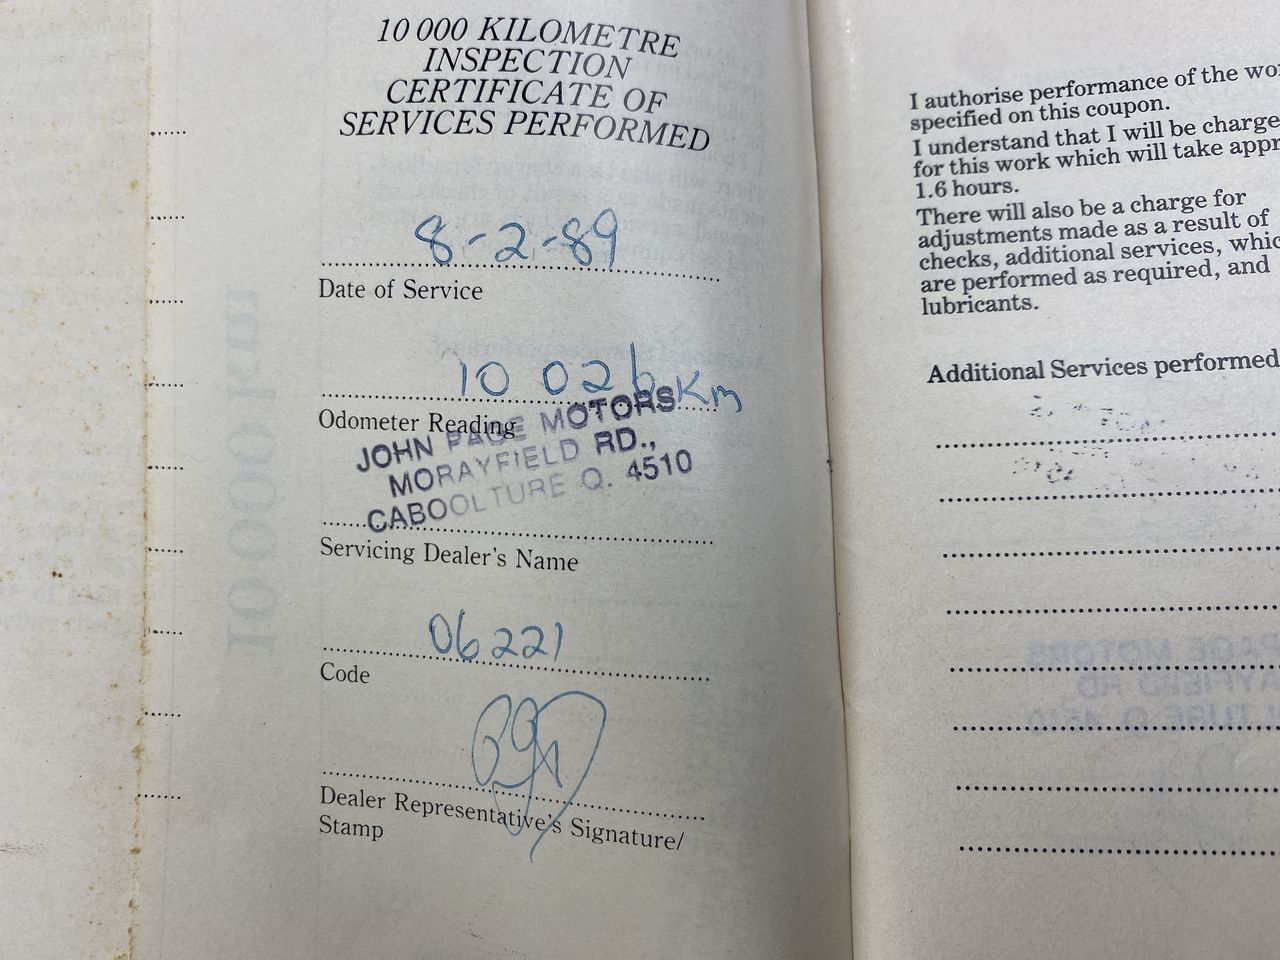 10 000 KILOMETRE
INSPECTION
CERTIFICATE OF
SERVICES PERFORMED
8-2-89
Date of Service
10 026 Km
Odometer Reading
JOHN PAGE MOTORS
MORAYFIELD RD.,
CABOOLTURE Q. 4510
Servicing Dealer's Name
06221
Code
Dealer Representative's Signature/
Stamp
10 000 km
I authorise performance of the
specified on this coupon.
I understand that I will be
for this work which will take
1.6 hours.
There will also be a charge for
adjustments made as a result of
checks, additional services,
are performed as required, and
lubricants.
Additional Services performed